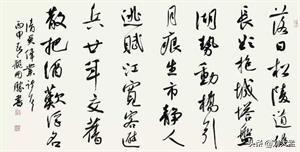 落日松陵道堤
長欲抱城塔盤
湖勢動橋引
月痕生市靜人
逃賦江寬客避
兵廿年交舊
散把酒歎浮名
清吳偉業詩
丙申
書
头条